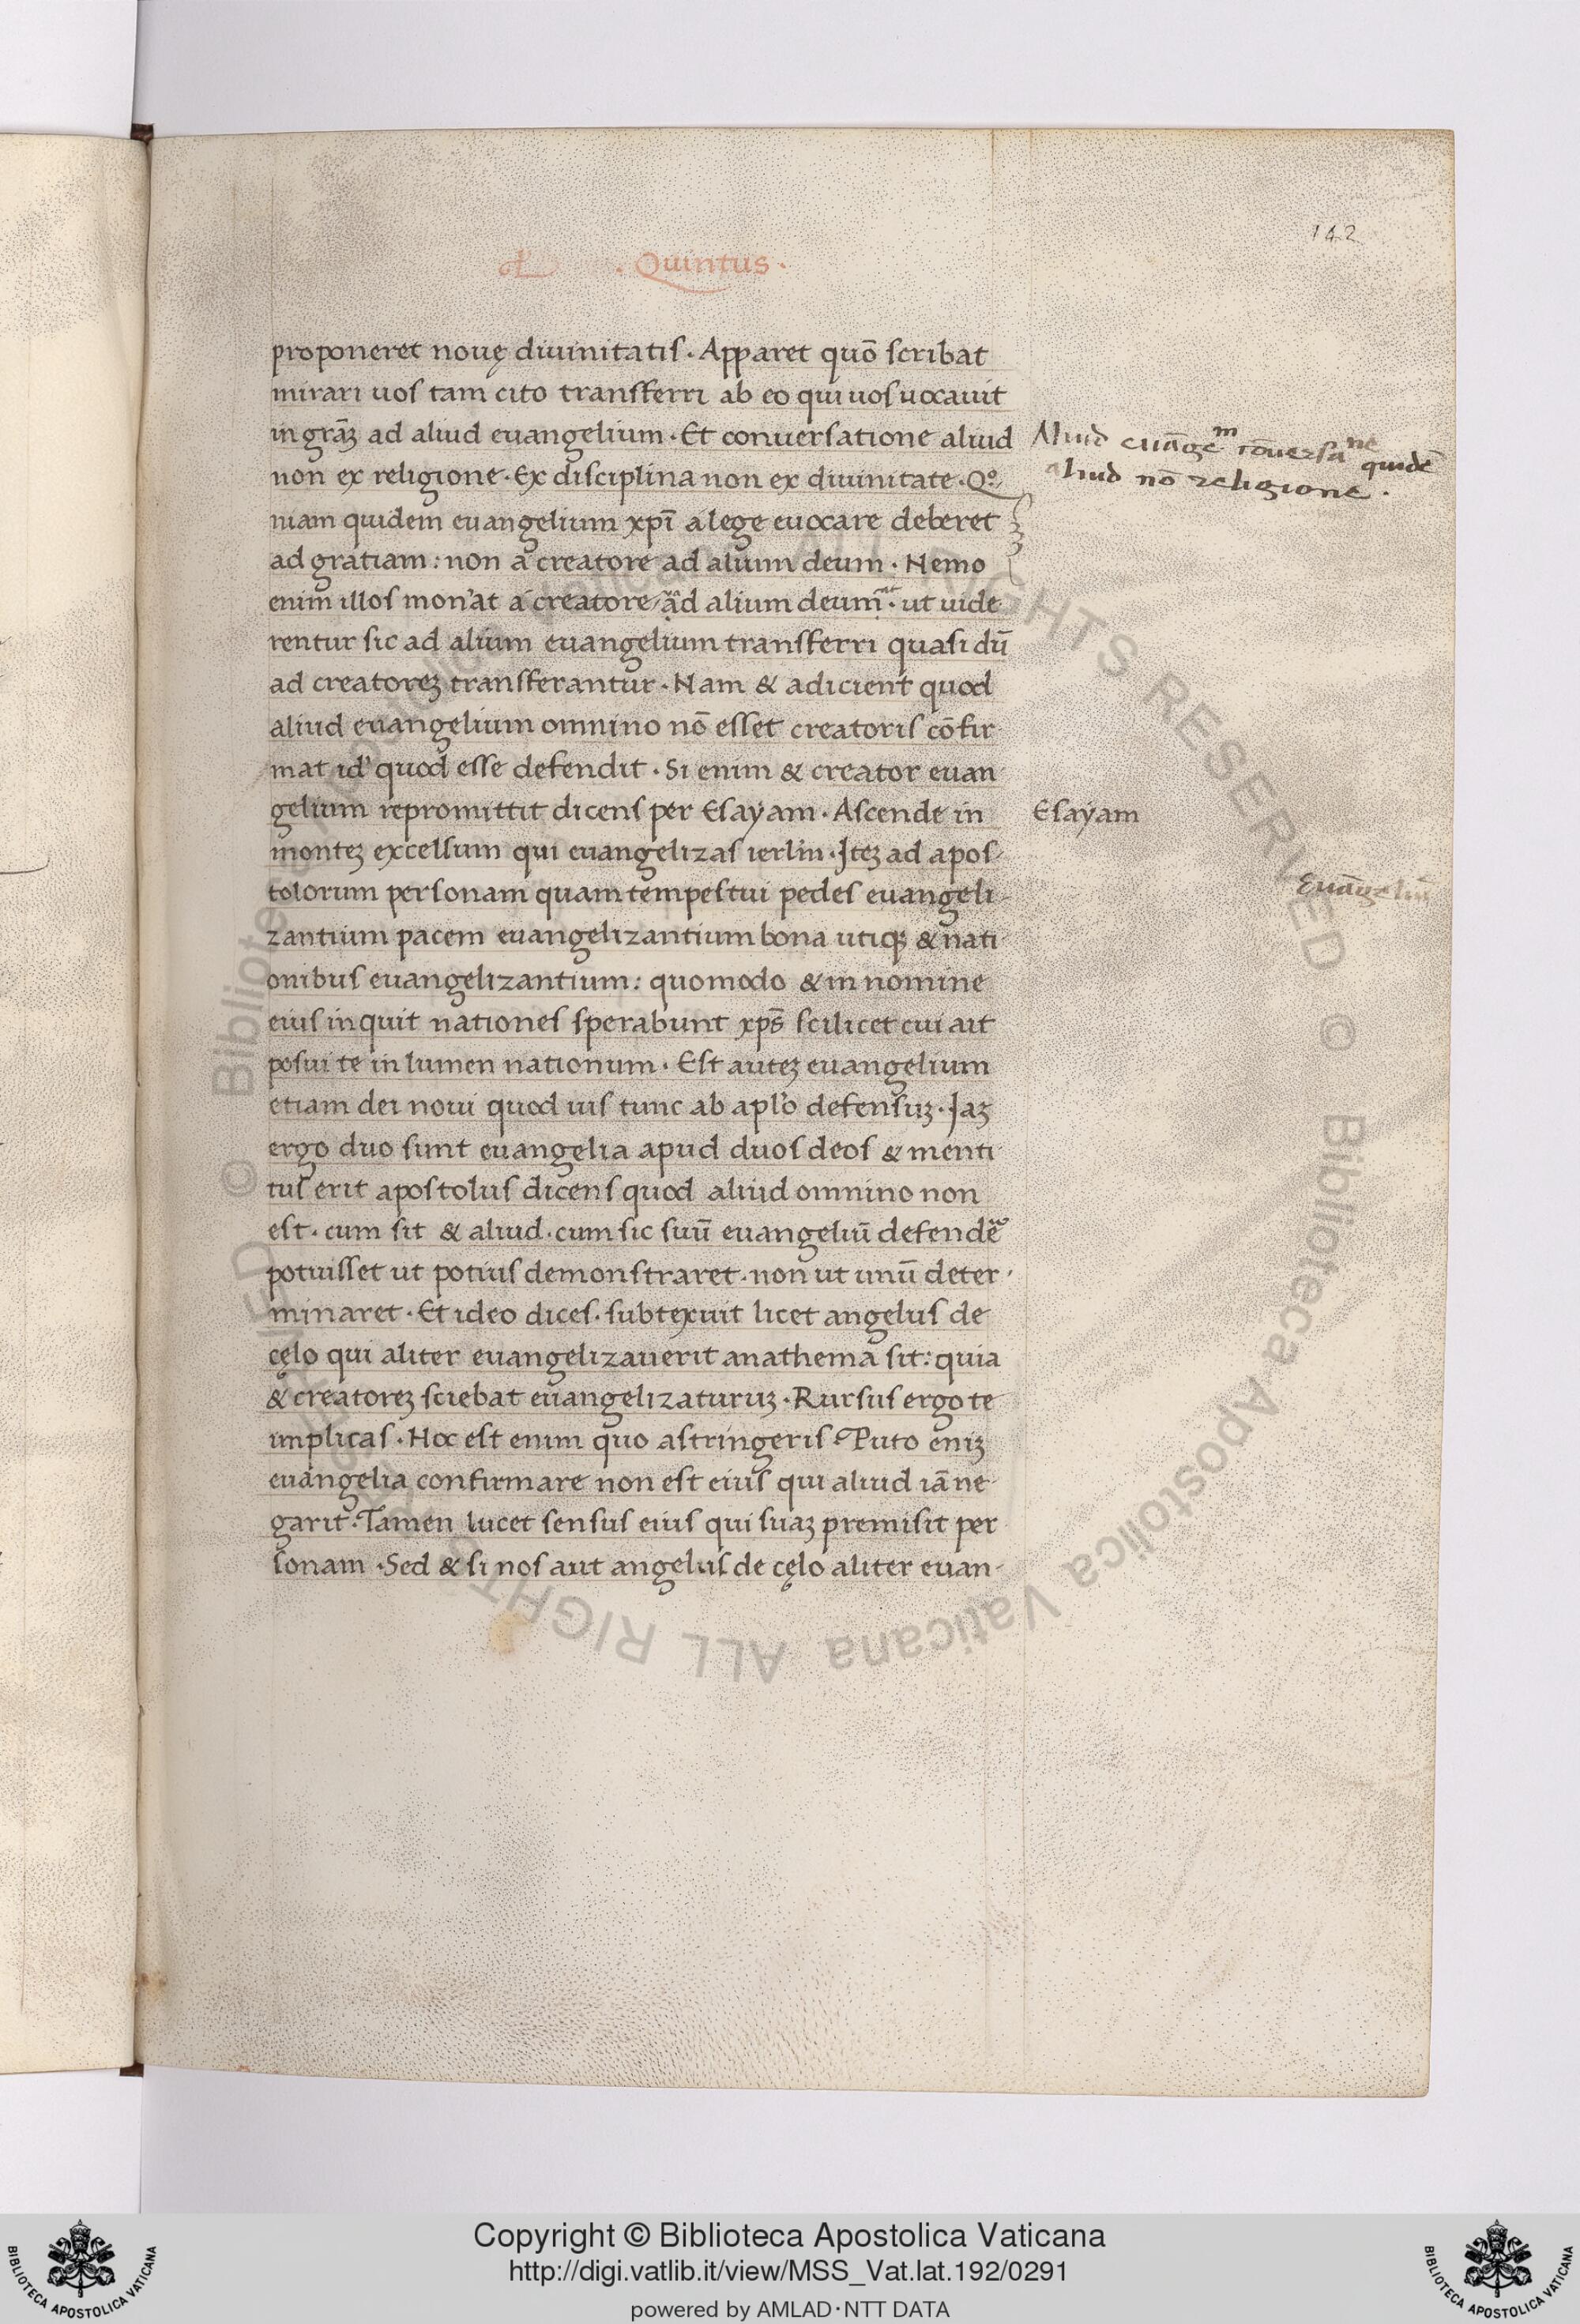 142
. Quintus .
proponeret nouę diuinitatis . Apparet quō scribat
mirari uos tam cito transferri ab eo qui uos uocauit
in grāꝫ ad aliud euangelium . Et conuersatione aliud
non ex religione . Ex disciplina non ex diuinitate . Qº
niam quidem euangelium xpī a lege euocare deberet
ad gratiam : non a creatore ad alium deum . Nemo
enim illos mon'at a creatore ad alium deum . ut uide
rentur sic ad alium euangelium transferri quasi dū
ad creatoreꝫ transferantur . Nam & adicient quod
aliud euangelium omnino nō esset creatoris cōfir
mat id' quod esse defendit . Si enim & creator euan
gelium repromittit dicens per Esaÿam . Ascende in
monteꝫ excelsum qui euangelizas ierlm . Iteꝫ ad apos-
tolorum personam quam tempestiui pedes euangeli-
zantium pacem euangelizantium bona utiqꝫ & nati
onibus euangelizantium : quomodo & in nomine
eius inquit nationes sperabunt xps̄ scilicet cui ait
posui te in lumen nationum . Est auteꝫ euangelium
etiam dei noui quod uis tunc ab apl'o defensuꝫ . Iaꝫ
ergo duo sunt euangelia apud duos deos & menti
tus erit apostolus dicens quod aliud omnino non
est . cum sit & aliud . cum sic suū euangeliū defendē
potuisset ut potius demonstraret . non ut unū deter-
minaret . Et ideo dices . subtexuit licet angelus de
cęlo qui aliter euangelizauerit anathema sit : quia
& creatoreꝫ sciebat euangelizaturuꝫ . Rursus ergo te
implicas . Hoc est enim quo astringeris . Puto eniꝫ
euangelia confirmare non est eius qui aliud iā ne
garit . Tamen lucet sensus eius qui suaꝫ premisit per
sonam . Sed & si nos aut angelus de cęlo aliter euan-
Aliud euāgeᵐ cōuersaⁿᵉ quidē
aliud nō religione .
Esaÿam
Euāgeliū
© Biblioteca Apostolica Vaticana ALL RIGHTS RESERVED © Biblioteca Apostolica Vaticana ALL RIGHTS RESERVED
Copyright © Biblioteca Apostolica Vaticana
http://digi.vatlib.it/view/MSS_Vat.lat.192/0291
powered by AMLAD・NTT DATA
BIBLIOTECA APOSTOLICA VATICANA
BIBLIOTECA APOSTOLICA VATICANA